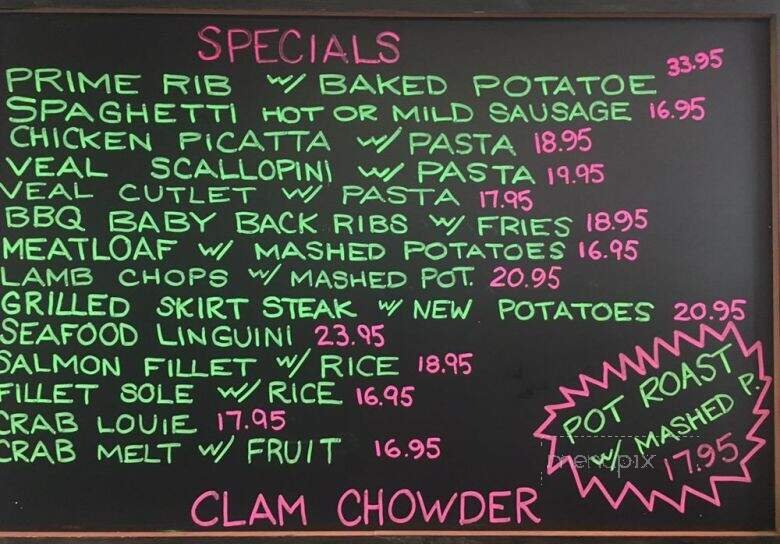 SPECIALS
PRIME RIB w/ BAKED POTATOE 33.95
SPAGHETTI HOT OR MILD SAUSAGE 16.95
CHICKEN PICATTA w/ PASTA 18.95
VEAL SCALLOPINI w/ PASTA 19.95
VEAL CUTLET w/ PASTA 17.95
BBQ BABY BACK RIBS w/ FRIES 18.95
MEATLOAF w/ MASHED POTATOES 16.95
LAMB CHOPS w/ MASHED POT. 20.95
GRILLED SKIRT STEAK w/ NEW POTATOES 20.95
SEAFOOD LINGUINI 23.95
SALMON FILLET w/ RICE 18.95
FILLET SOLE w/ RICE 16.95
CRAB LOUIE 17.95
CRAB MELT w/ FRUIT 16.95
POT ROAST
w/ MASHED P.
17.95
menupix
CLAM CHOWDER